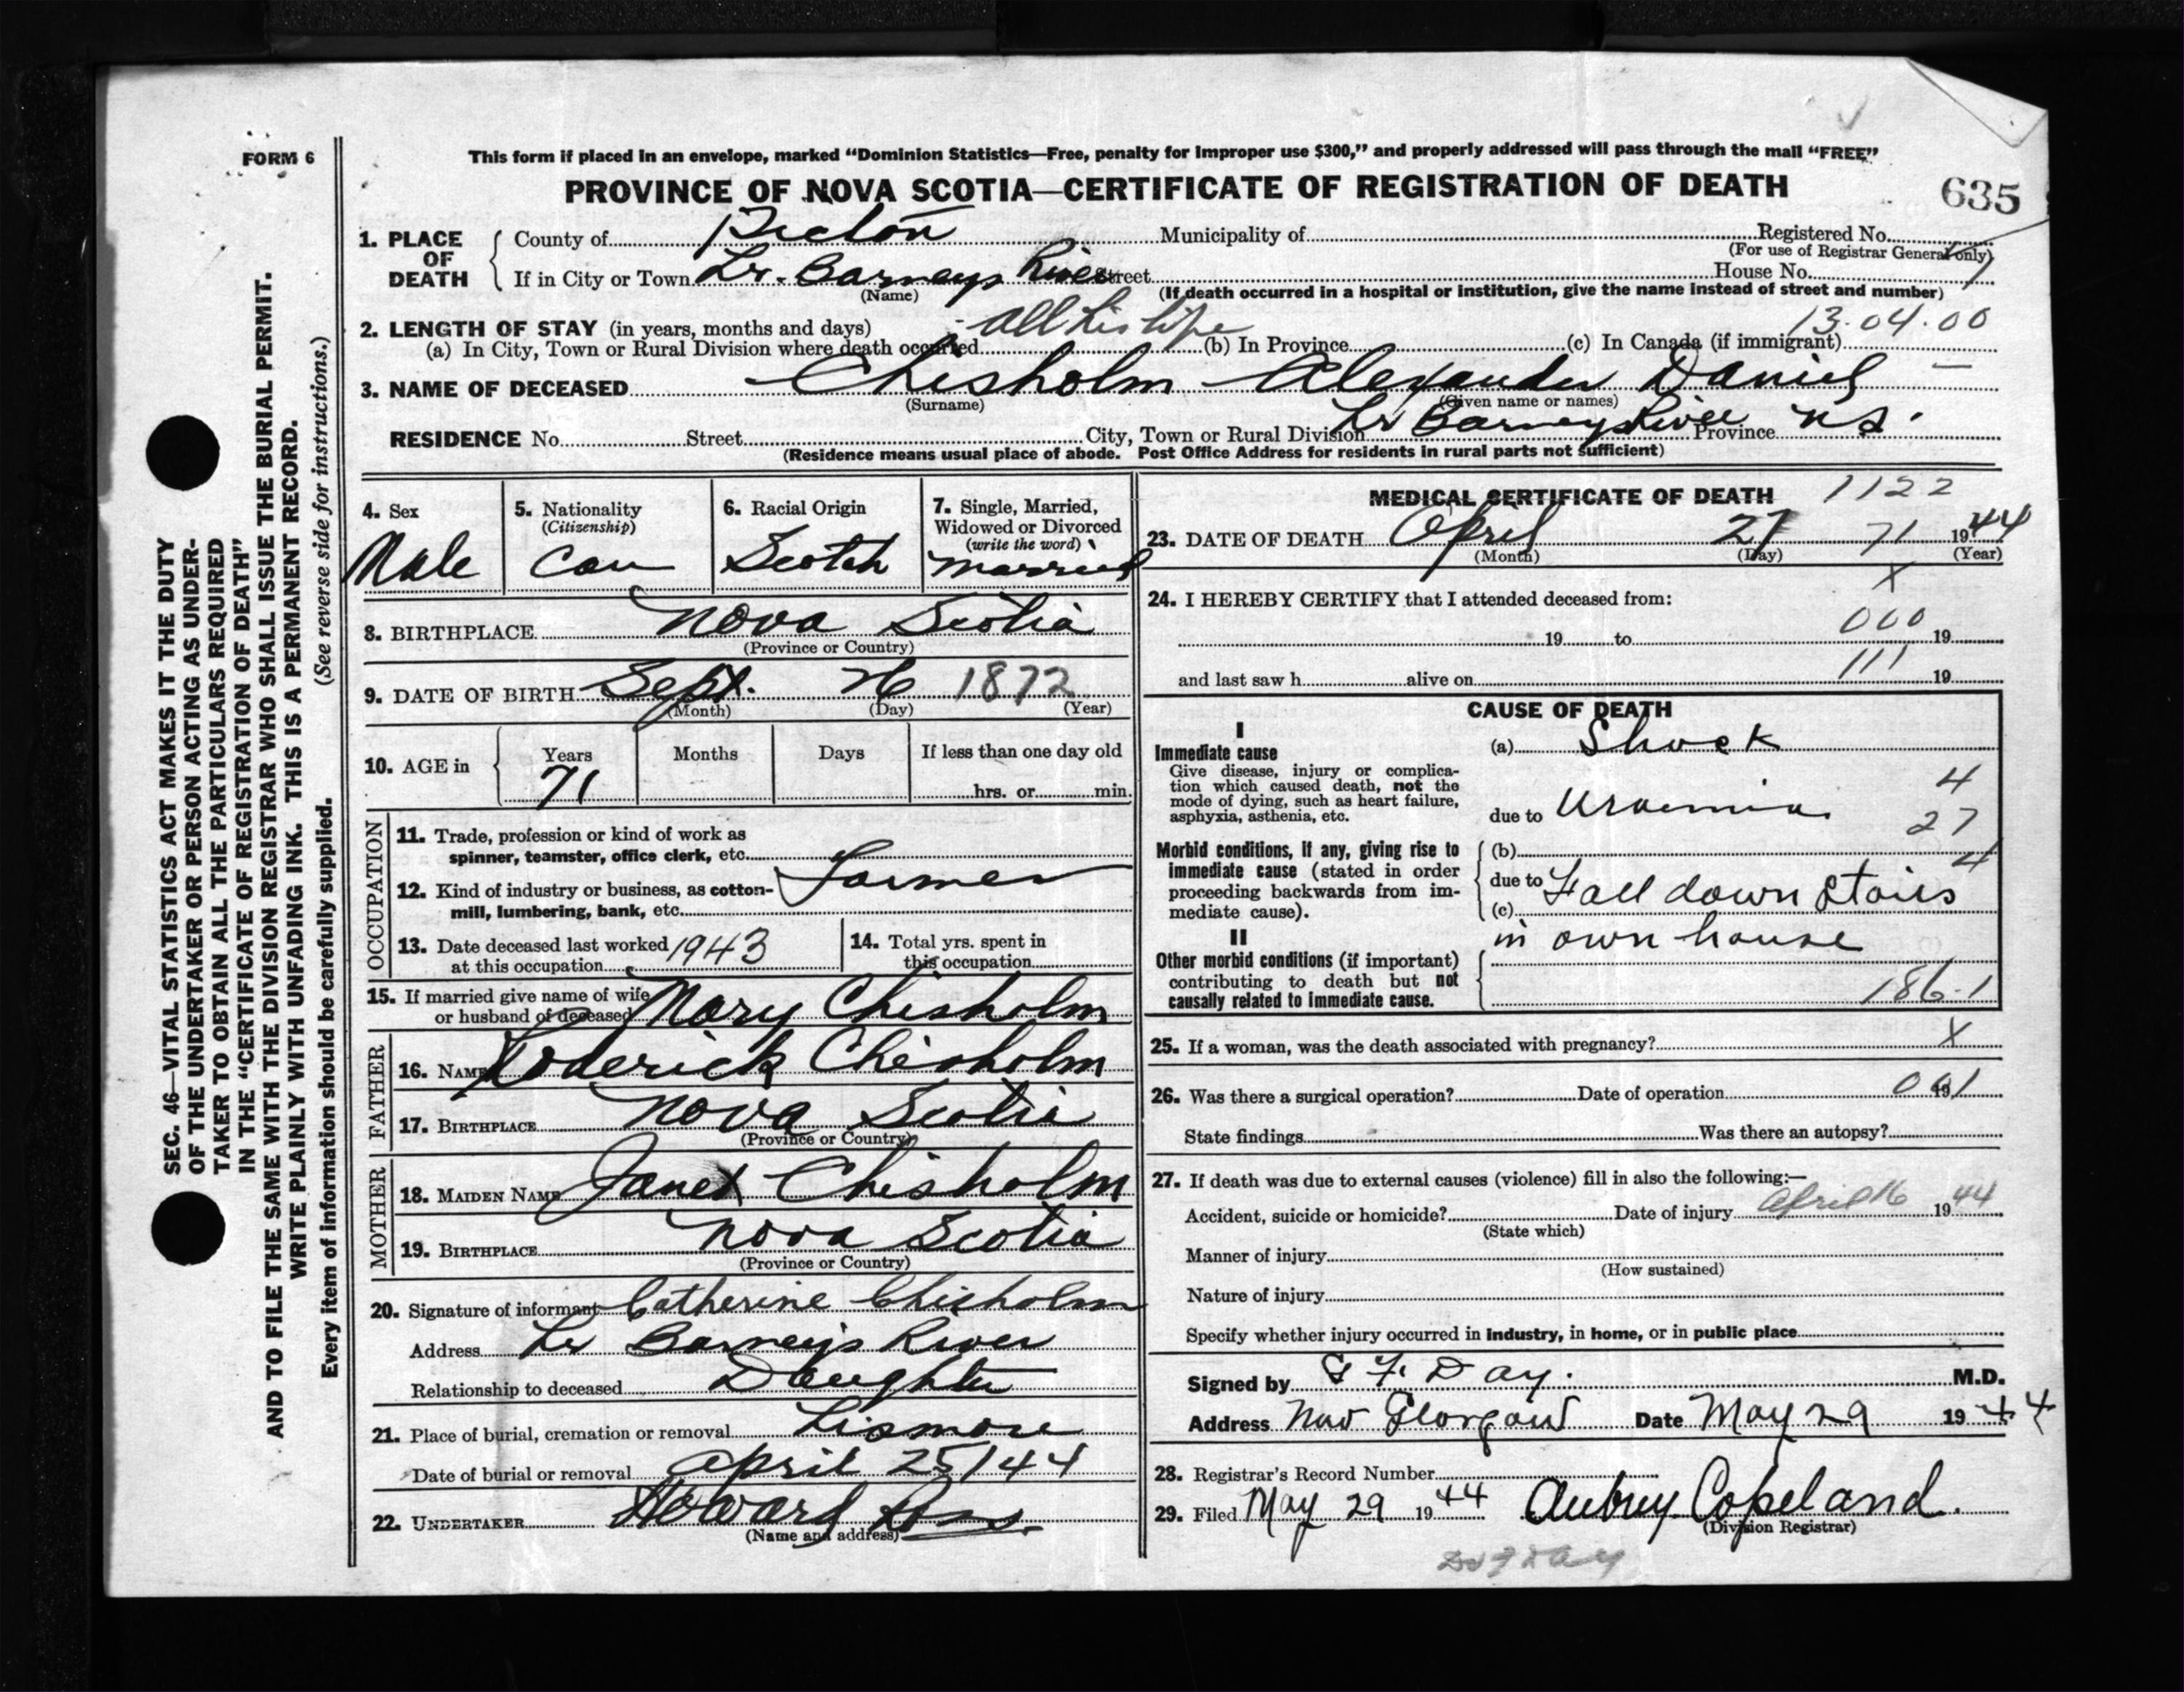 FORM 6
This form if placed in an envelope, marked "Dominion Statistics—Free, penalty for improper use $300," and properly addressed will pass through the mail "FREE"
PROVINCE OF NOVA SCOTIA—CERTIFICATE OF REGISTRATION OF DEATH
635
1. PLACE OF DEATH
County of Pictou Municipality of Registered No.
(For use of Registrar General only)
If in City or Town Lr. Barneys River Street House No.
(Name) (If death occurred in a hospital or institution, give the name instead of street and number)
2. LENGTH OF STAY (in years, months and days) all his life 13.04.00
(a) In City, Town or Rural Division where death occurred (b) In Province (c) In Canada (if immigrant)
3. NAME OF DECEASED Chisholm Alexander Daniel —
(Surname) (Given name or names)
RESIDENCE No. Street City, Town or Rural Division Lr Barneys River Province N.S.
(Residence means usual place of abode. Post Office Address for residents in rural parts not sufficient)
4. Sex
Male
5. Nationality
(Citizenship)
Can
6. Racial Origin
Scotch
7. Single, Married, Widowed or Divorced
(write the word)
Married
8. BIRTHPLACE Nova Scotia
(Province or Country)
9. DATE OF BIRTH Sept. 26 1872
(Month) (Day) (Year)
10. AGE in
Years Months Days If less than one day old
71 hrs. or min.
OCCUPATION
11. Trade, profession or kind of work as
spinner, teamster, office clerk, etc.
Farmer
12. Kind of industry or business, as cotton-
mill, lumbering, bank, etc.
13. Date deceased last worked 1943
at this occupation
14. Total yrs. spent in
this occupation
15. If married give name of wife
or husband of deceased Mary Chisholm
FATHER
16. NAME Roderick Chisholm
17. BIRTHPLACE Nova Scotia
(Province or Country)
MOTHER
18. MAIDEN NAME Janet Chisholm
19. BIRTHPLACE Nova Scotia
(Province or Country)
20. Signature of informant Catherine Chisholm
Address Lr Barney's River
Relationship to deceased Daughter
21. Place of burial, cremation or removal Lismore
Date of burial or removal April 25/44
22. UNDERTAKER Howard
(Name and address)
MEDICAL CERTIFICATE OF DEATH 1122
23. DATE OF DEATH April 71 1944
(Month) (Day) (Year)
X
24. I HEREBY CERTIFY that I attended deceased from:
000
19 to 19
111
and last saw h alive on 19
CAUSE OF DEATH
I
Immediate cause
Give disease, injury or complica-
tion which caused death, not the
mode of dying, such as heart failure,
asphyxia, asthenia, etc.
(a) Shock
4
due to Uraemia.
27
Morbid conditions, if any, giving rise to
immediate cause (stated in order
proceeding backwards from im-
mediate cause).
(b)
4
due to Fall down stairs
(c)
in own house
II
Other morbid conditions (if important)
contributing to death but not
causally related to immediate cause.
186.1
25. If a woman, was the death associated with pregnancy? X
26. Was there a surgical operation? Date of operation 19
State findings Was there an autopsy?
27. If death was due to external causes (violence) fill in also the following:—
Accident, suicide or homicide? Date of injury April 16 1944
(State which)
Manner of injury
(How sustained)
Nature of injury
Specify whether injury occurred in industry, in home, or in public place
Signed by G F. Day. M.D.
Address New Glasgow Date May 29 1944
28. Registrar's Record Number
29. Filed May 29 1944 Aubrey Copeland.
(Division Registrar)
SEC. 46—VITAL STATISTICS ACT MAKES IT THE DUTY
OF THE UNDERTAKER OR PERSON ACTING AS UNDER-
TAKER TO OBTAIN ALL THE PARTICULARS REQUIRED
IN THE "CERTIFICATE OF REGISTRATION OF DEATH"
AND TO FILE THE SAME WITH THE DIVISION REGISTRAR WHO SHALL ISSUE THE BURIAL PERMIT.
WRITE PLAINLY WITH UNFADING INK. THIS IS A PERMANENT RECORD.
Every item of information should be carefully supplied. (See reverse side for instructions.)